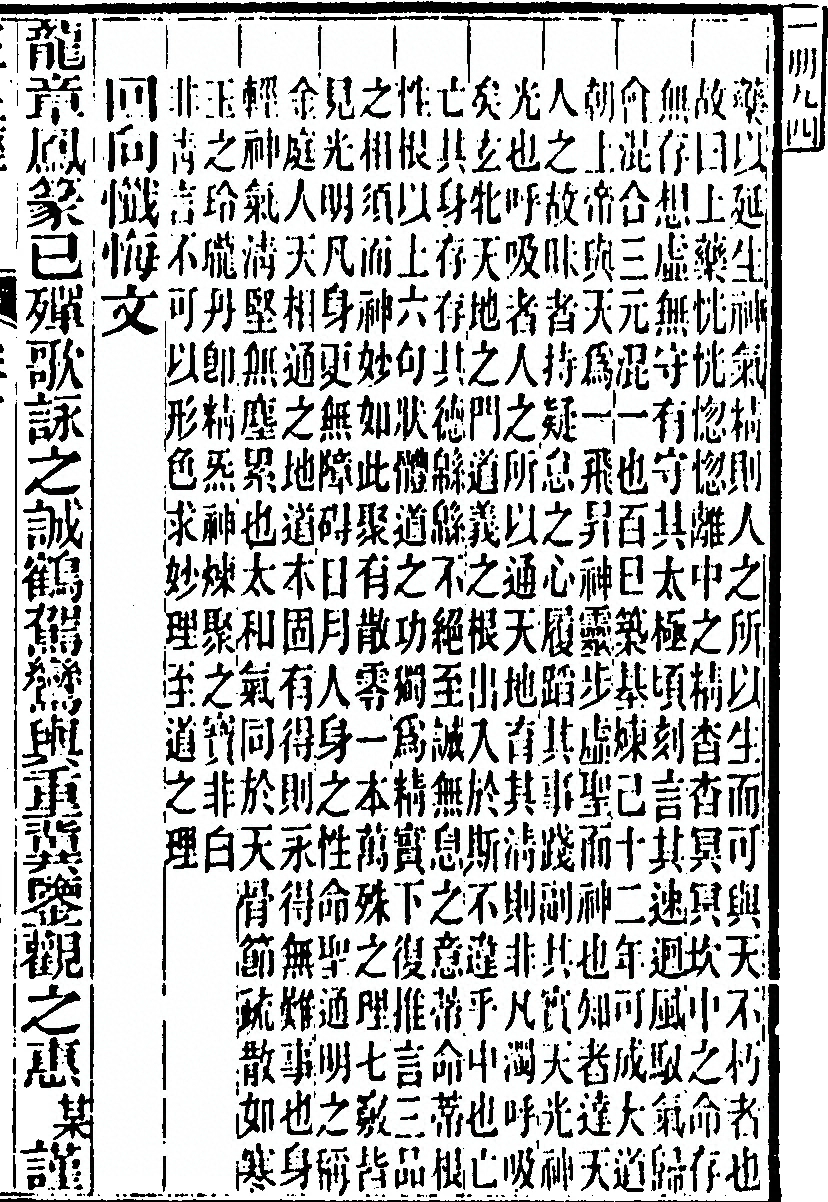 藥以延生神氣精則人之所以生而可與天不朽者也
故曰上藥恍恍惚惚離中之精杳杳冥冥坎中之命存
無存想虛無守有守其太極頃刻言其速迴風馭氣歸
會混合三元混一也百日築基煉己十二年可成大道
朝上帝與天為一飛昇神靈步虛聖而神也知者達天
人之故昧者持疑怠之心履蹈其事踐副其實天光神
光也呼吸者人之所以通天地育其清則非凡濁呼吸
矣玄牝天地之門道義之根出入於斯不違乎中也亡
亡其身存存其德綿綿不絕至誠無息之意蒂命蒂根
性根以上六句狀體道之功獨為精實下復推言三品
之相須而神妙如此聚有散零一本萬殊之理七竅皆
見光明凡身更無障碍日月人身之性命聖通明之稱
金庭人天相通之地道本固有得則永得無難事也身
輕神氣清堅無塵累也太和氣同於天骨節疏散如寒
玉之玲瓏丹即精炁神煉聚之寶非白
非青言不可以形色求妙理至道之理
回向懺悔文
龍章鳳篆已殫歌詠之誠鶴駕鸞輿重冀鑒觀之惠某謹